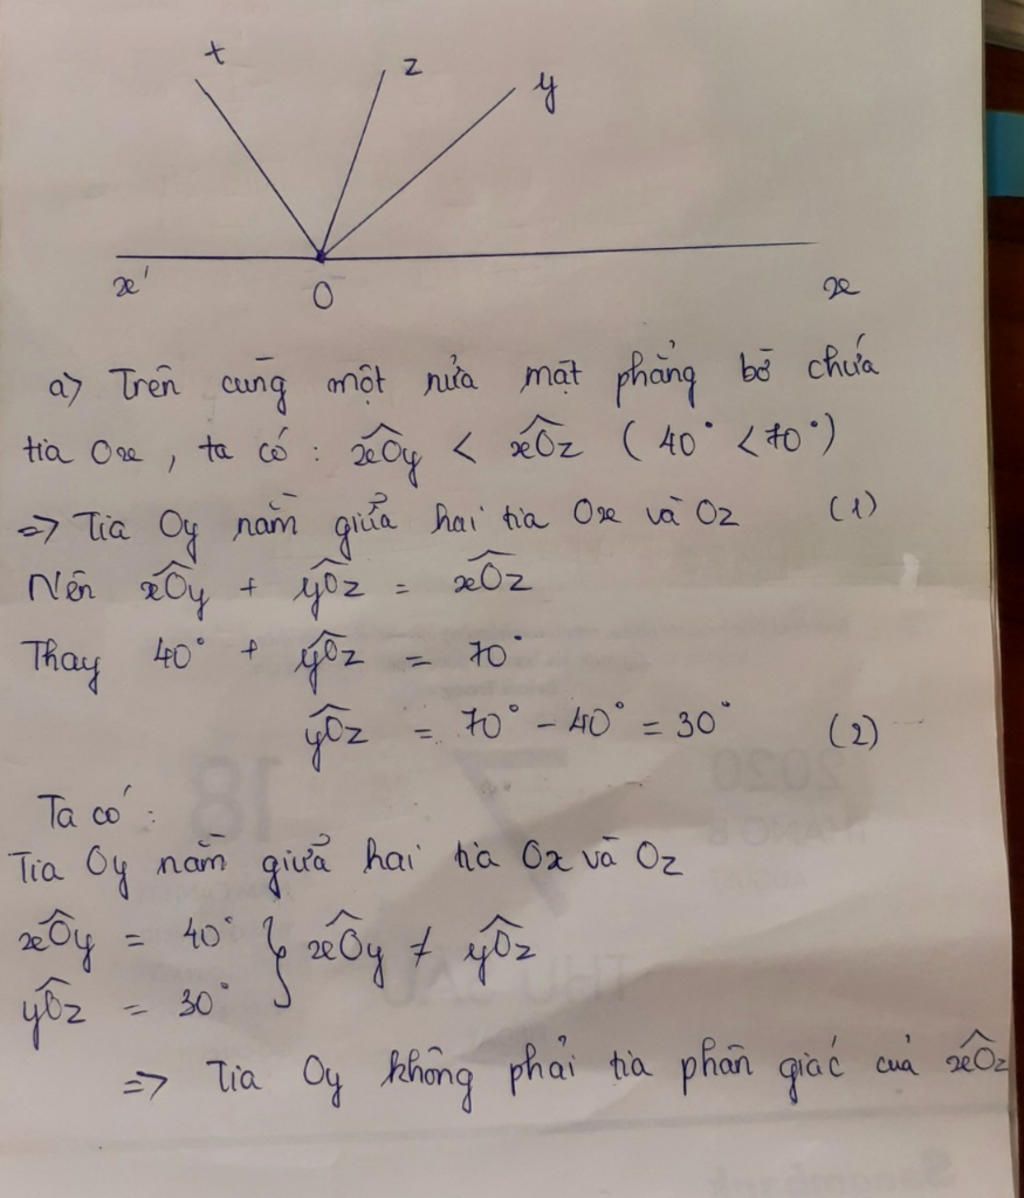 t
z
y
x'
O
x
a) Trên cùng một nửa mặt phẳng bờ chứa
tia Ox, ta có: xÔy < xÔz (40° < 70°)
=> Tia Oy nằm giữa hai tia Ox và Oz (1)
Nên xÔy + yÔz = xÔz
Thay 40° + yÔz = 70°
yÔz = 70° - 40° = 30° (2)
Ta có:
Tia Oy nằm giữa hai tia Ox và Oz
xÔy = 40° } xÔy ≠ yÔz
yÔz = 30°
=> Tia Oy không phải tia phân giác của xÔz